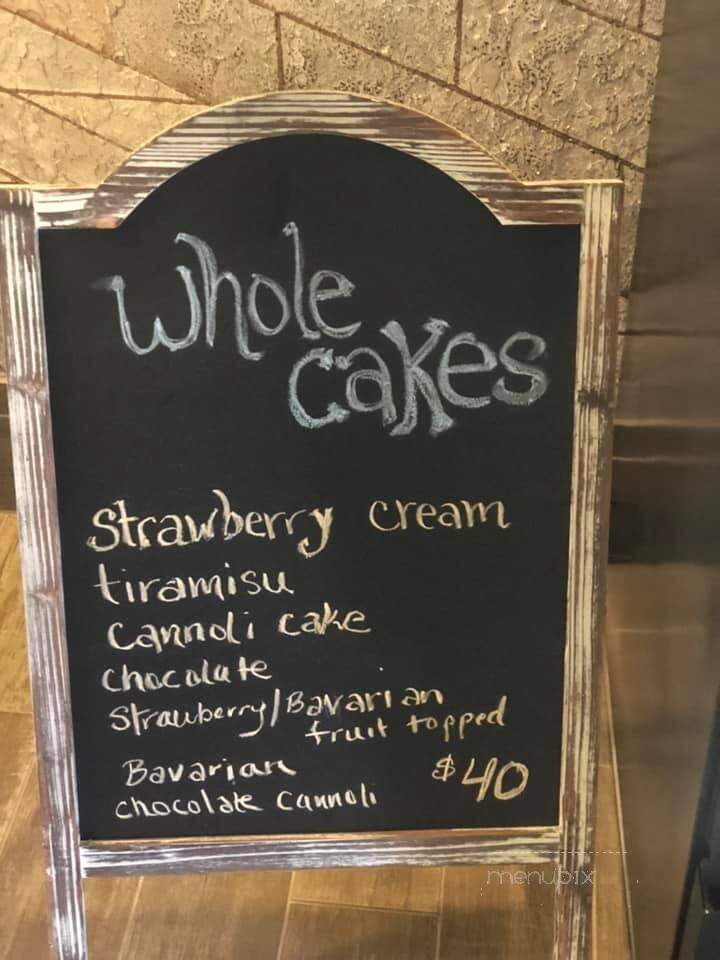 Whole
Cakes
Strawberry cream
tiramisu
Cannoli cake
Chocolate
Strawberry/Bavarian
fruit topped
Bavarian
$40
chocolate Cannoli
menubix